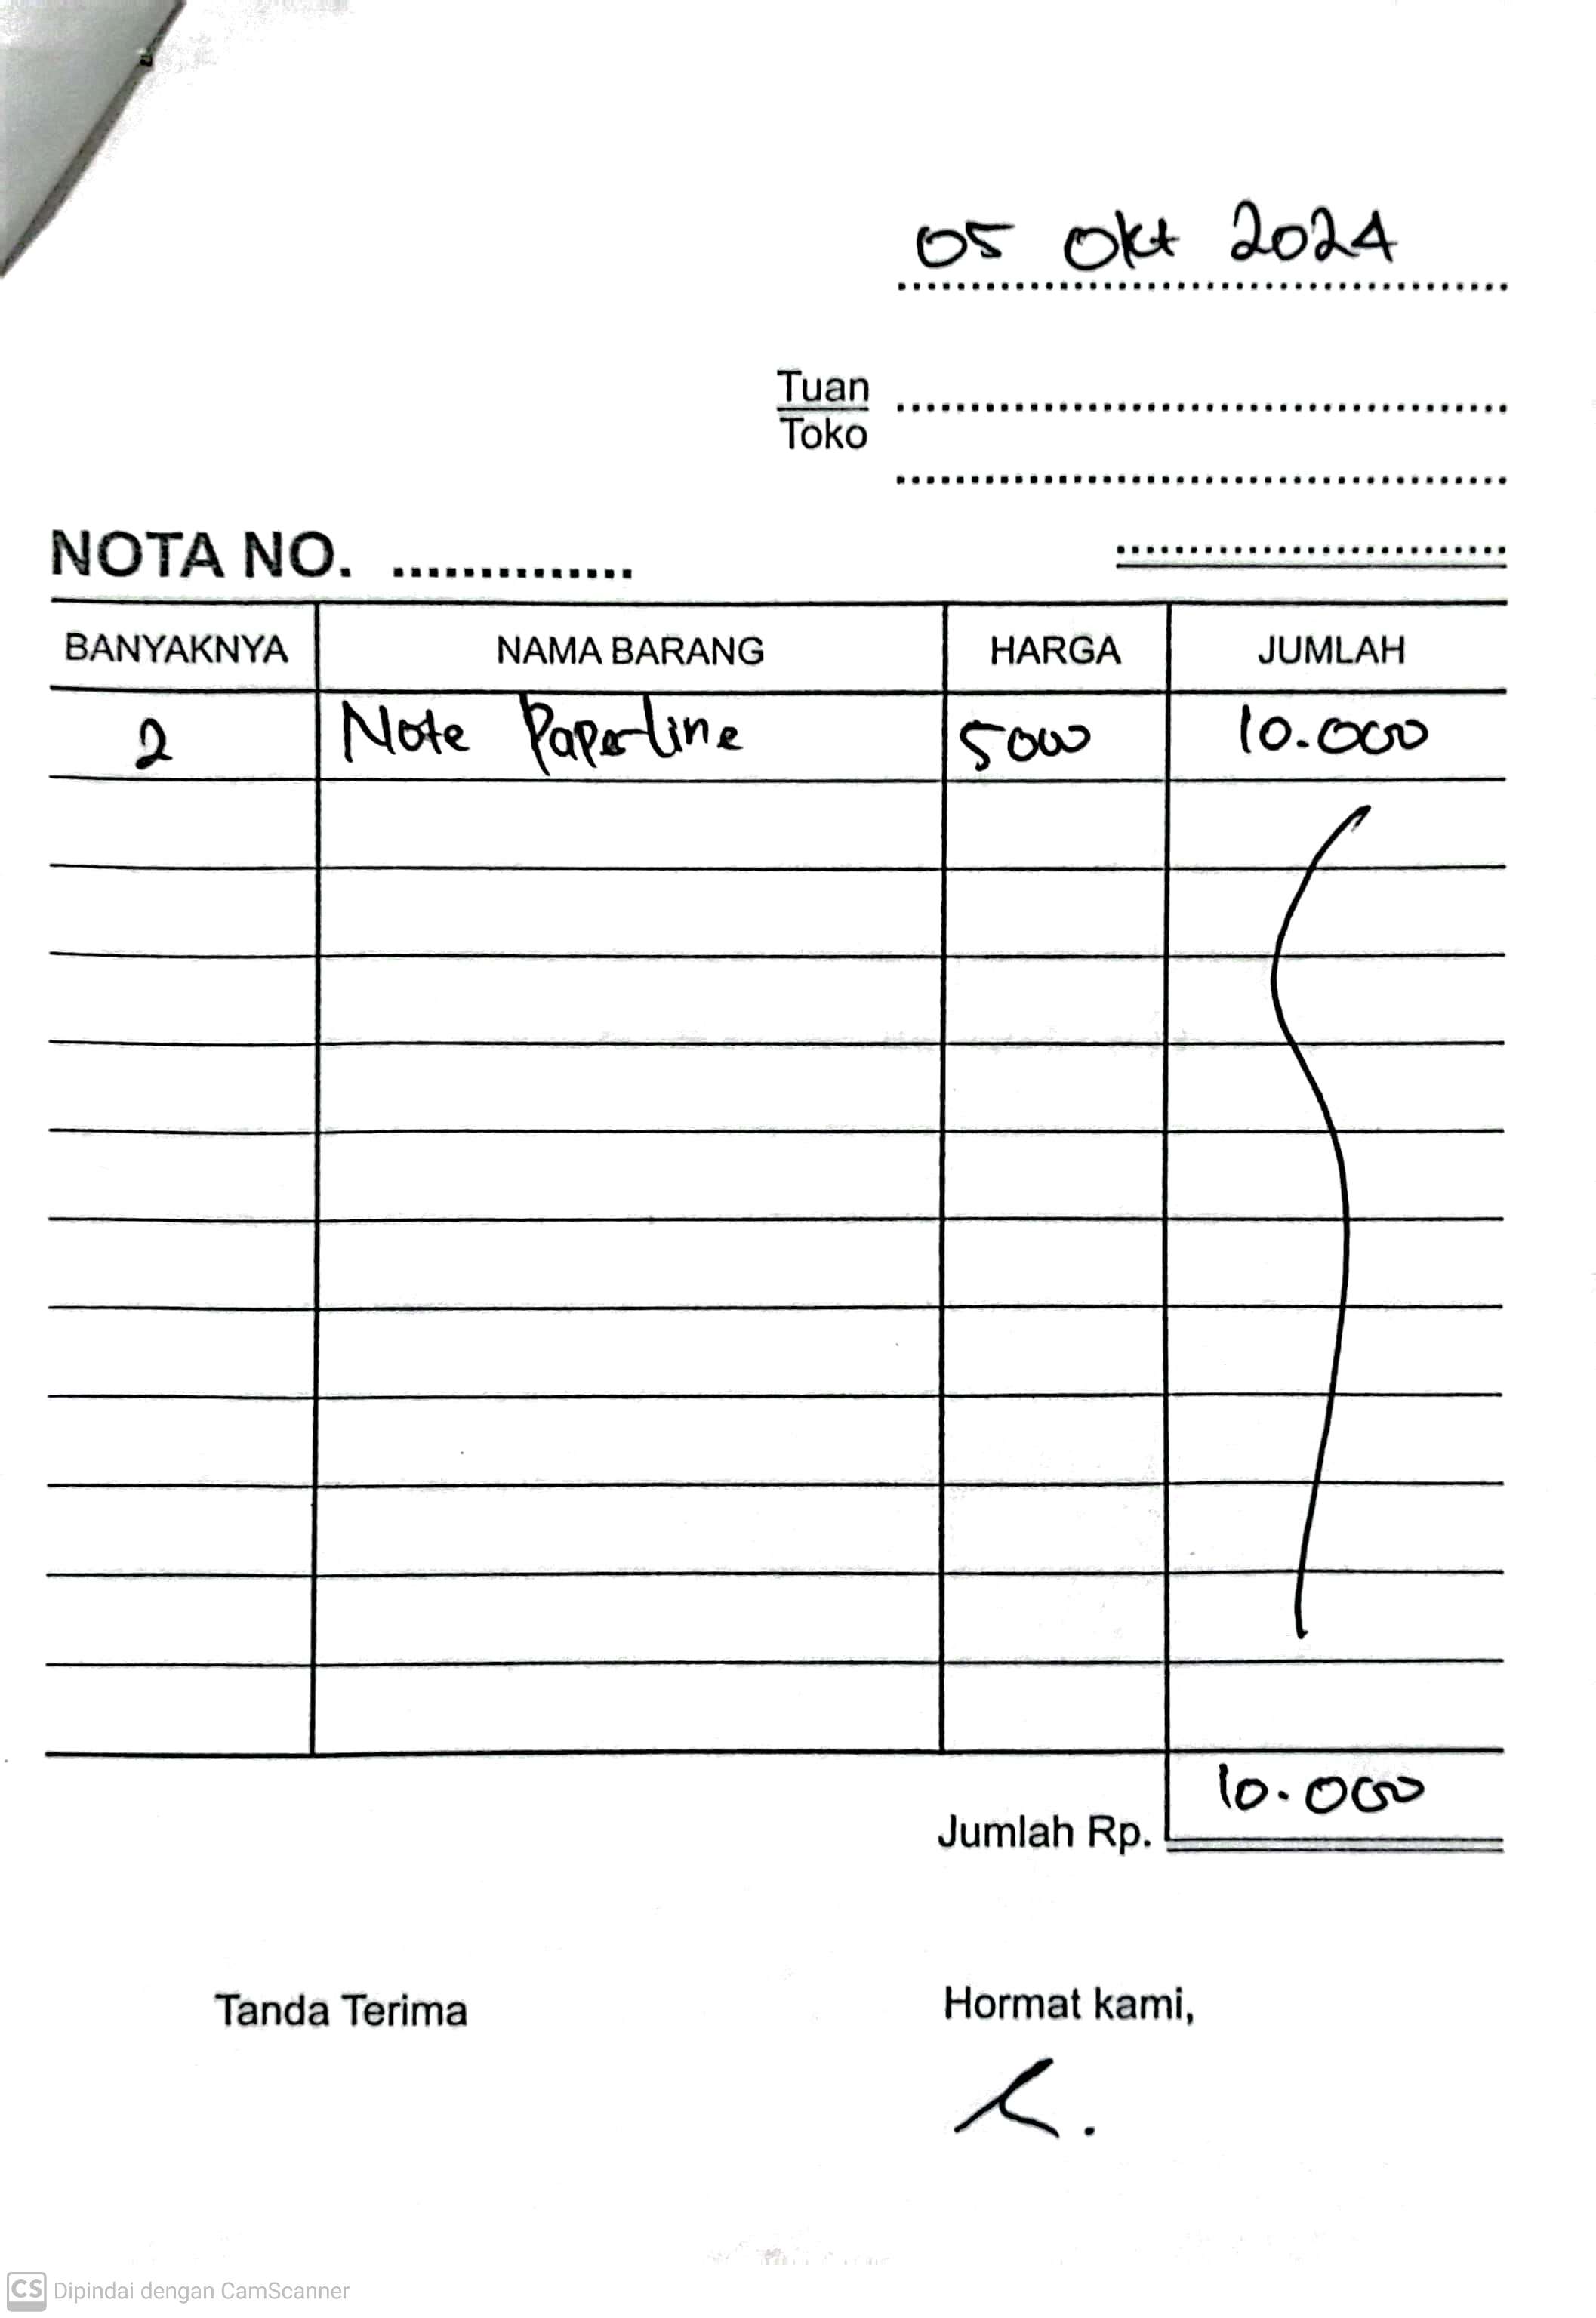 05 Okt 2024
Tuan
Toko
NOTA NO. ..............
BANYAKNYA NAMA BARANG HARGA JUMLAH
2 Note Paperline 5000 10.000
Jumlah Rp. 10.000
Tanda Terima Hormat kami,
CS Dipindai dengan CamScanner